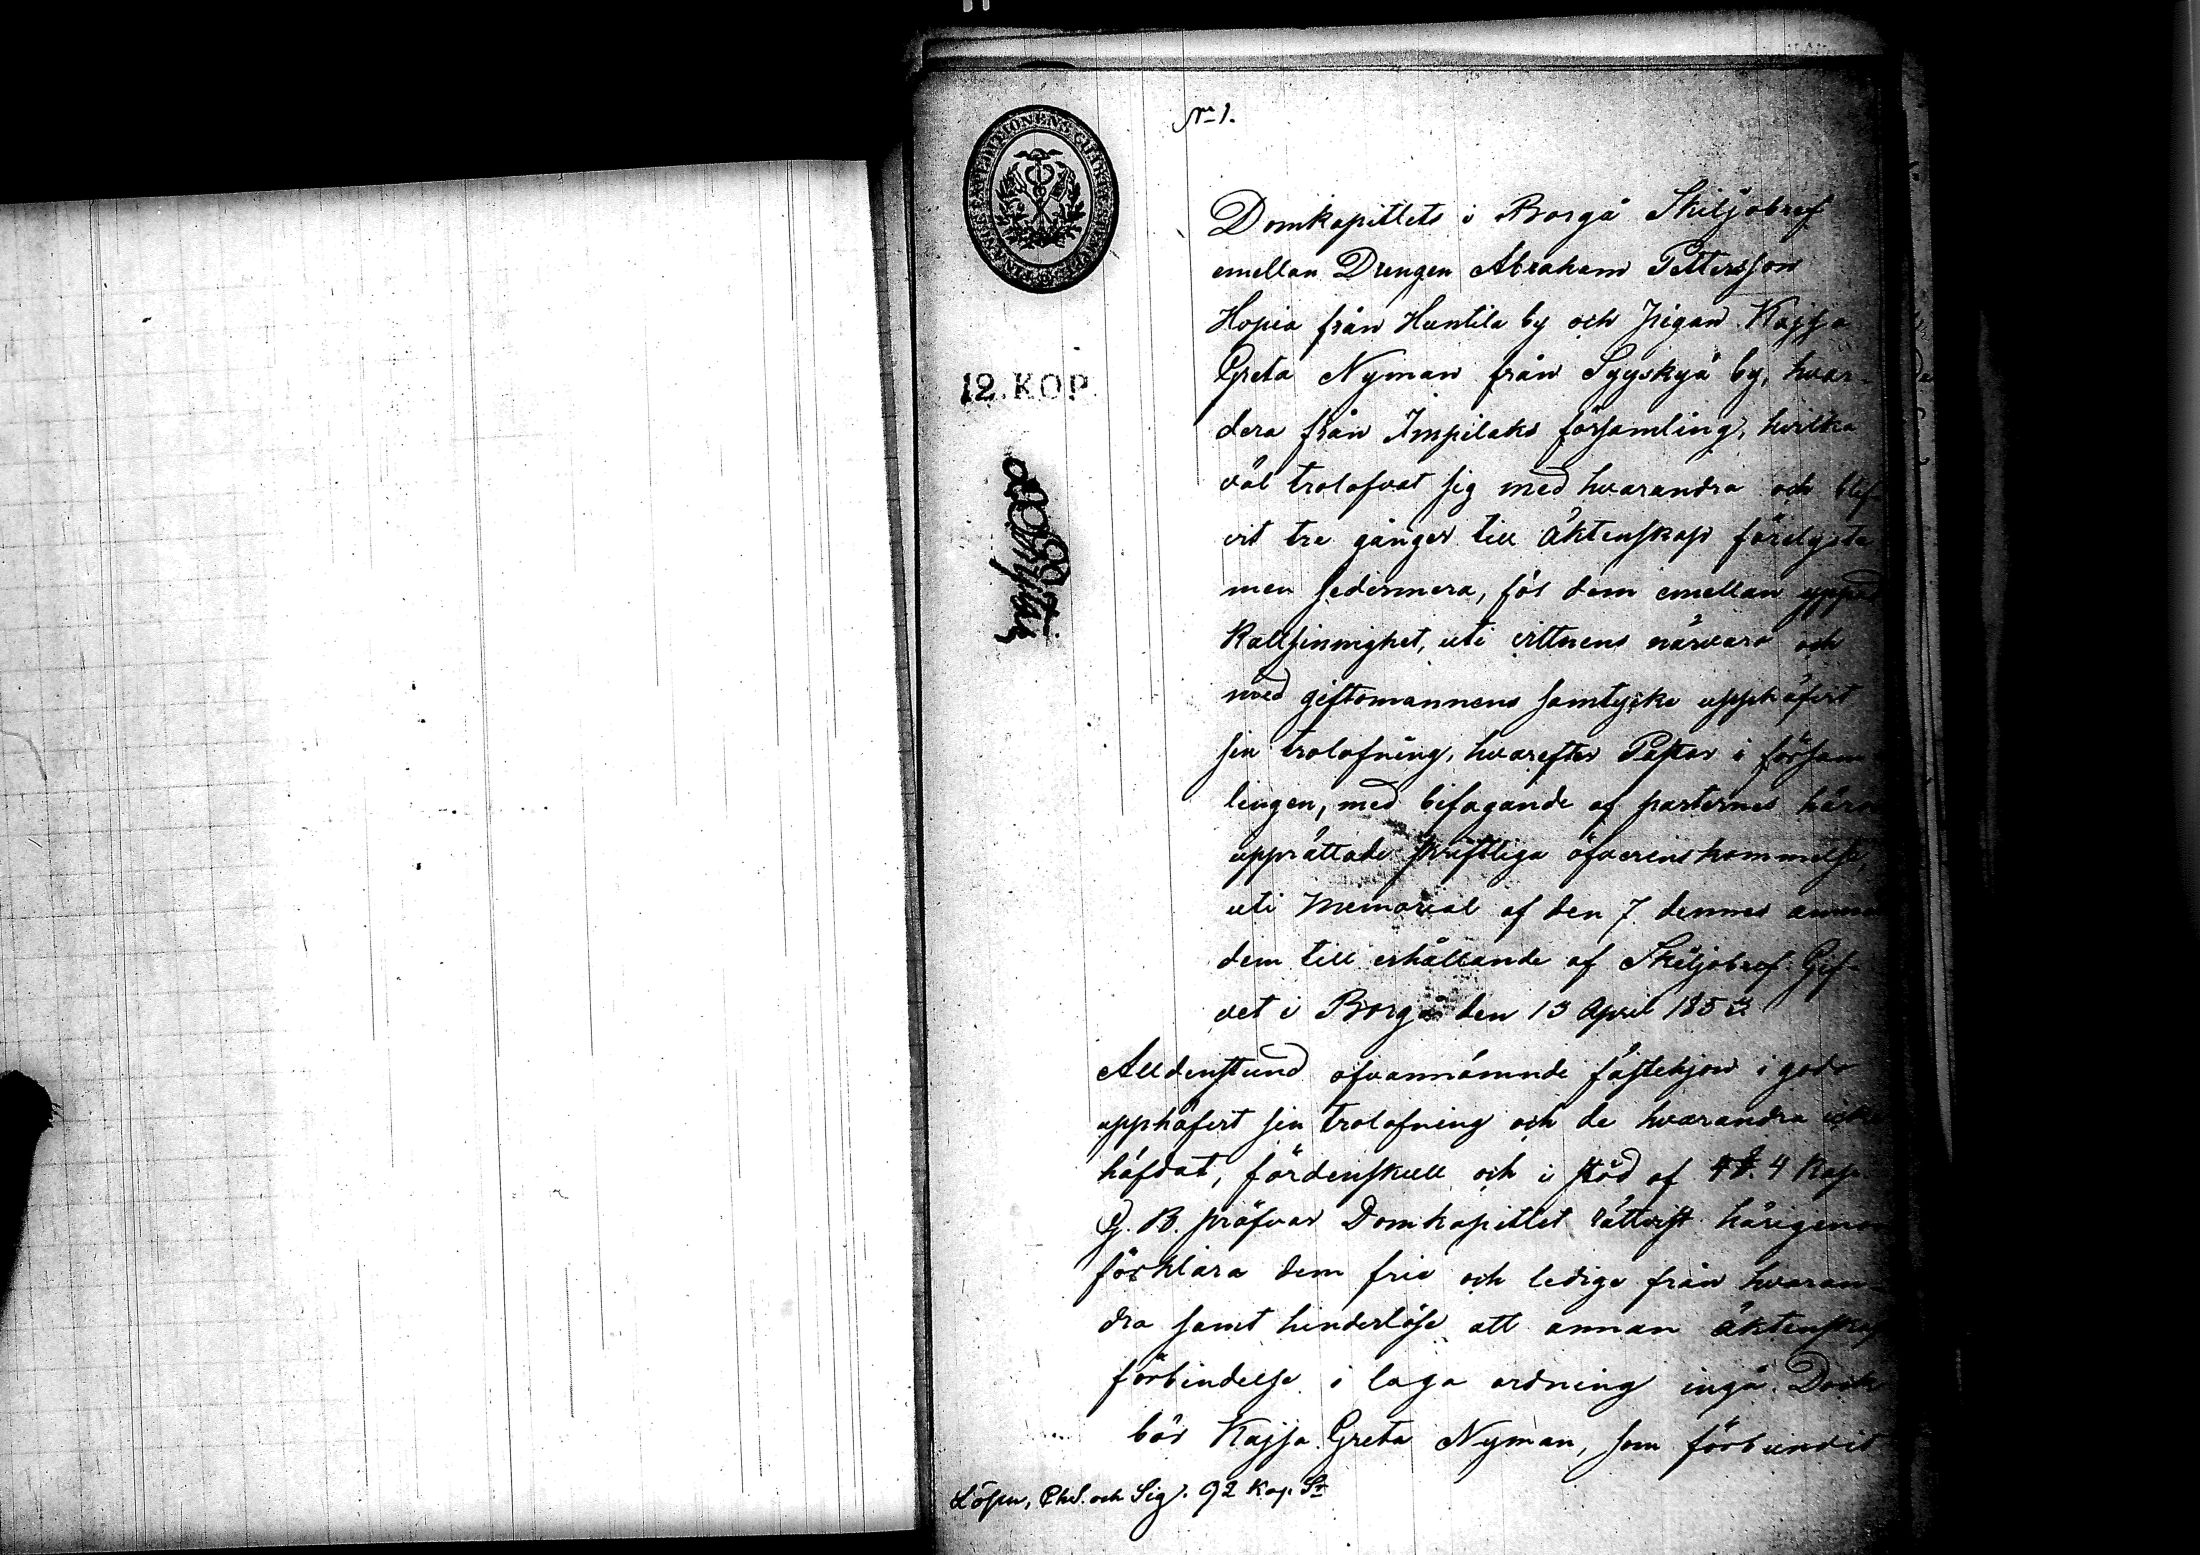 No 1.
Domkapitlets i Borgå Skiljobref
emellan Drengen Abraham Pettersson
Hopia från Huntila by och pigan Kajsa
Greta Nyman från Syskyä by, hvar-
dera från Impilaks församling, hvilka
väl trolofvat sig med hvarandra och blif-
vit tre gånger till äktenskap förelysta
men sedermera, för dem emellan
kallsinnighet, uti vittnens närvaro och
med giftomannens samtycke upphäfvit
sin trolofning, hvarefter Pastor i försam-
lingen, med bifogande af parternes
upprättade skriftliga öfverenskommelse,
uti Memorial af den 7 dennes
dem till erhållande af Skiljobref. Gif-
vet i Borgå den 13 April 1853.
Alldenstund ofvannämnde fästehjon i godo
upphäfvit sin trolofning och de hvarandra icke
häfdat, fördenskull och i stöd af 4 §. 4 Kap.
G. B. pröfvar Domkapitlet rättvist härigenom
förklara dem fria och lediga från hvaran-
dra samt hinderlöse att annan äktenskaps
förbindelse i laga ordning ingå. Dock
bör Kajsa Greta Nyman, som förbundit
Lösen, Chs. och Sig). 92 Kop. Sr
FINANCE EXPEDITIONENS CHARTÆ SIGILLATÆ
12. KOP.